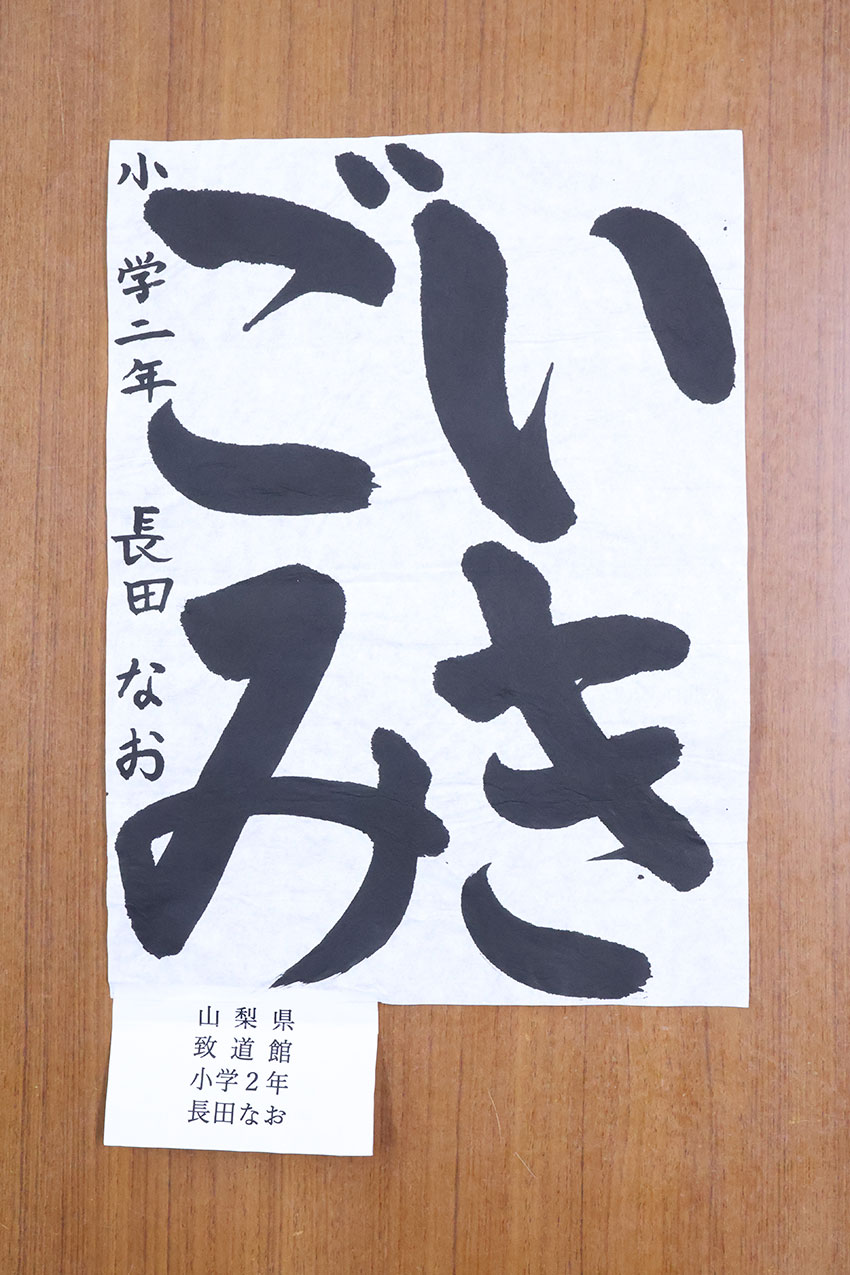 いき
ごみ
小学二年 長田 なお
山梨県
致道館
小学2年
長田なお